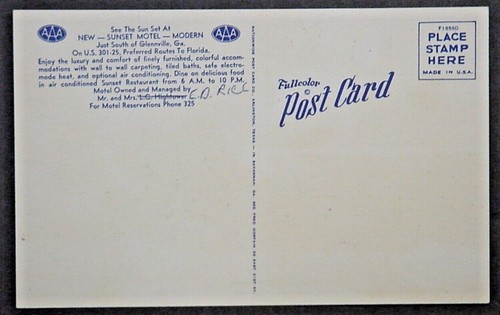 AAA
AAA
See The Sun Set At
NEW — SUNSET MOTEL — MODERN
Just South of Glennville, Ga.
On U.S. 301-25, Preferred Routes To Florida.
Enjoy the luxury and comfort of finely furnished, colorful accom-
modations with wall to wall carpeting, tiled baths, safe electro-
mode heat, and optional air conditioning. Dine on delicious food
in air conditioned Sunset Restaurant from 6 A.M. to 10 P.M.
Motel Owned and Managed by
Mr. and Mrs. L.G. Hightower C.D. RICE
For Motel Reservations Phone 325
Fullcolor
Post Card
©
F18860
PLACE
STAMP
HERE
MADE IN U.S.A.
POST CARD CO., ARLINGTON, TEXAS